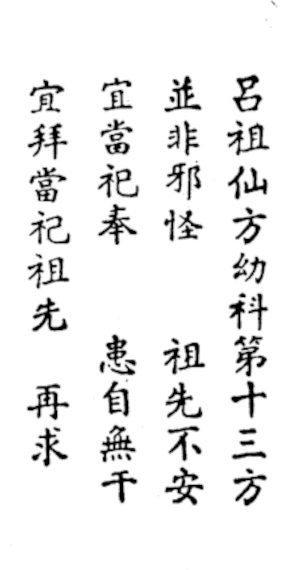 呂祖仙方幼科第十三方
並非邪怪　祖先不安
宜當祀奉　患自無干
宜拜當祀祖先　再求